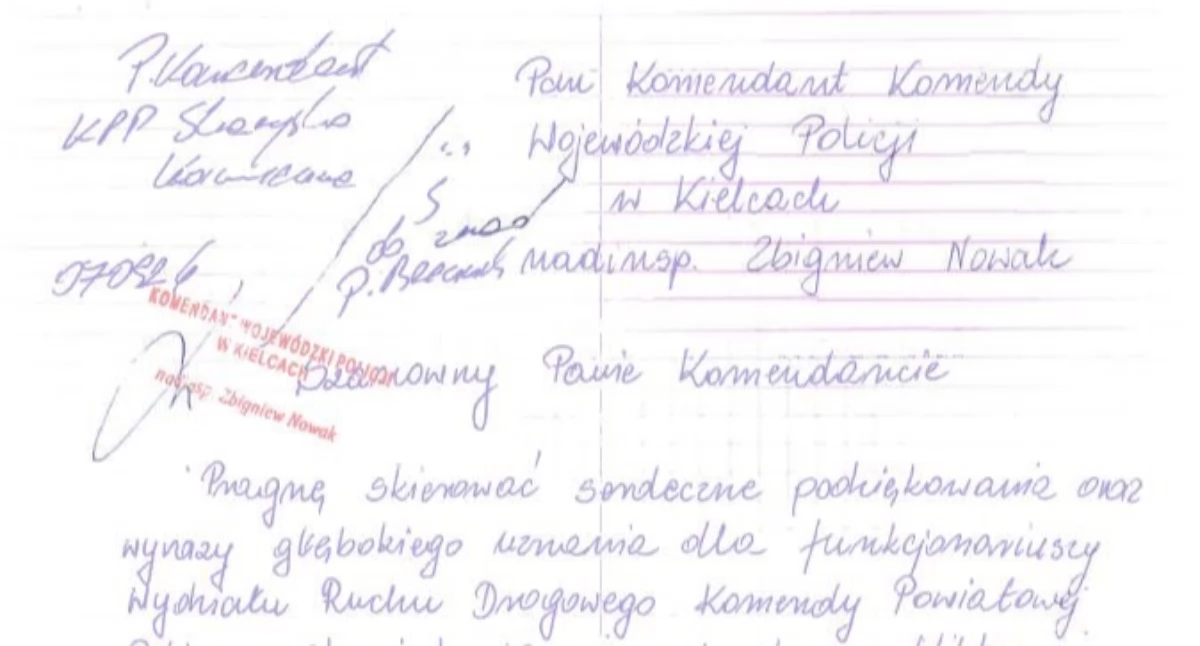 P. Komendant
KPP Skarżysko
Kamienna
Pan Komendant Komendy
Wojewódzkiej Policji
w Kielcach
nadinsp. Zbigniew Nowak
do
P.
KOMENDANT WOJEWÓDZKI POLICJI
W KIELCACH
nadinsp. Zbigniew Nowak
Szanowny Panie Komendancie
Pragnę skierować serdeczne podziękowania oraz
wyrazy głębokiego uznania dla funkcjonariuszy
Wydziału Ruchu Drogowego Komendy Powiatowej